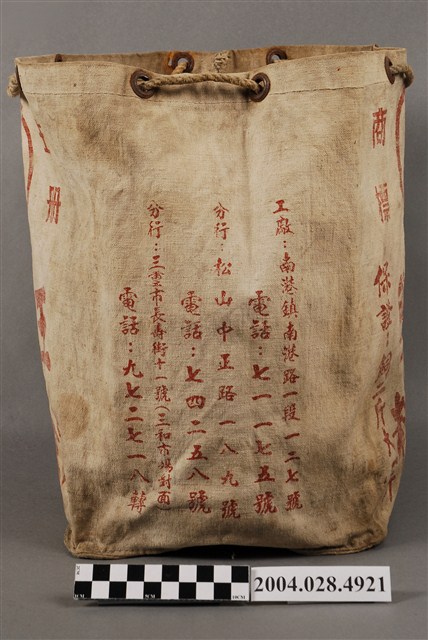 工廠：南港鎮南港路一段一二七號
電話：七一一七五號
分行：松山中正路一八九號
電話：七四二五八號
分行：三重市長壽街十一號(三和市場對面
電話：九七二七一八轉
商標
保証
册
2004.028.4921